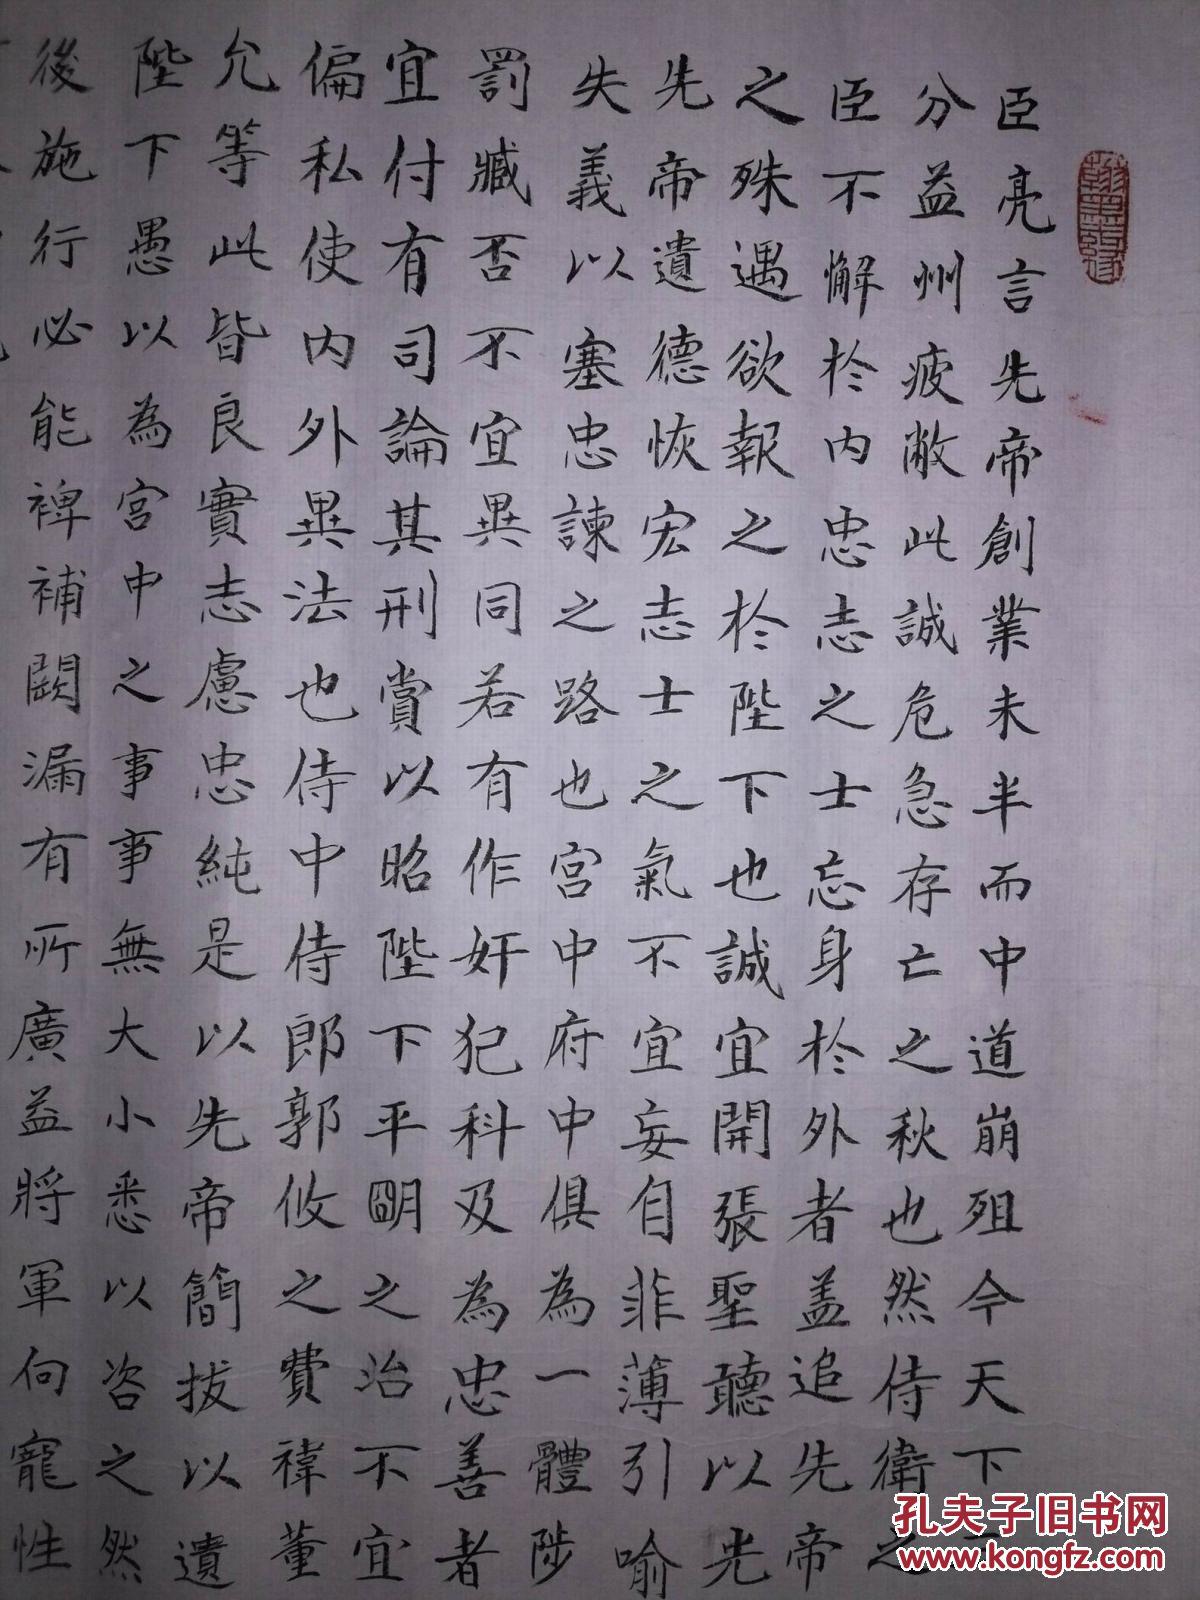 臣亮言先帝創業未半而中道崩殂今天下
分益州疲敝此誠危急存亡之秋也然侍衛之
臣不懈於內忠志之士忘身於外者盖追先帝
之殊遇欲報之於陛下也誠宜開張聖聽以光
先帝遺德恢宏志士之氣不宜妄自菲薄引喻
失義以塞忠諫之路也宮中府中俱為一體陟
罰臧否不宜異同若有作奸犯科及為忠善者
宜付有司論其刑賞以昭陛下平明之治不宜
偏私使內外異法也侍中侍郎郭攸之費禕董
允等此皆良實志慮忠純是以先帝簡拔以遺
陛下愚以為宮中之事事無大小悉以咨之然
後施行必能裨補闕漏有所廣益將軍向寵性
孔夫子旧书网
www.kongfz.com